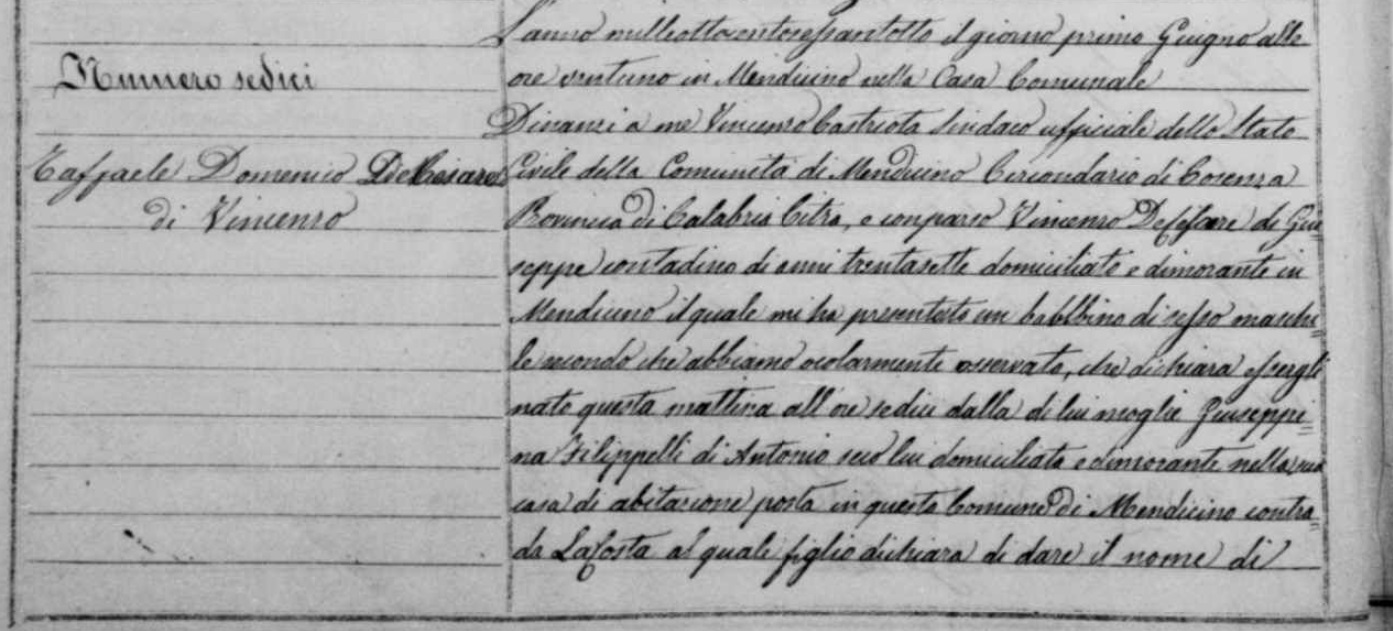 Numero sedici
Raffaele Domenico DeCesare
di Vincenzo
L'anno milleottocentosessantotto il giorno primo Giugno alle
ore ventuno in Mendicino nella Casa Comunale
Dinanzi a me Vincenzo Castriota Sindaco ufficiale dello Stato
Civile della Comunità di Mendicino Circondario di Cosenza
Provincia di Calabria Citra, e comparso Vincenzo DeCesare di Giu=
seppe contadino di anni trentasette domiciliato e dimorante in
Mendicino il quale mi ha presentato un babbbino di sesso maschi=
le secondo che abbiamo ocolarmente osservato, che dichiara essergli
nato questa mattina all'ore sedici dalla di lui moglie Giuseppi=
na Filippelli di Antonio seco lui domiciliata e dimorante nella sua
casa di abitazione posta in questo Comune di Mendicino contra=
da LaCosta al quale figlio dichiara di dare il nome di